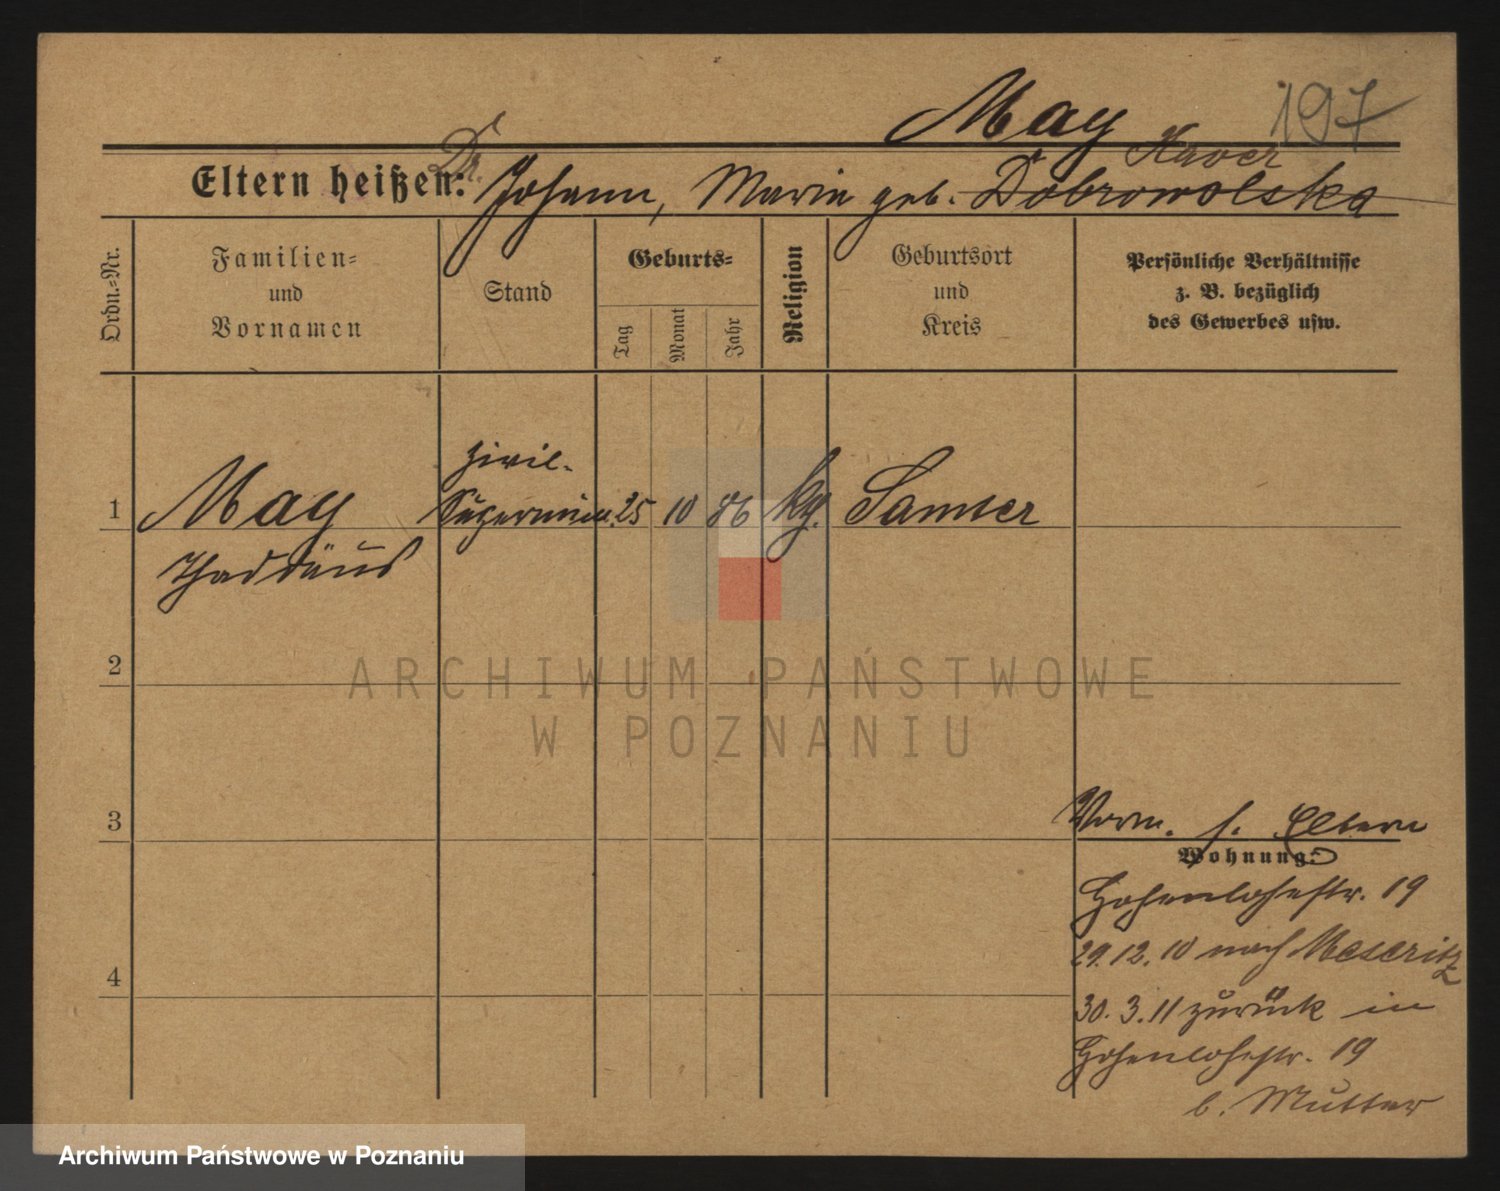 May 197
Dr. Xaver
Eltern heißen: Johann, Marie geb. Dobrowolska
Ordn.-Nr.
Familien-
und
Vornamen
Stand
Geburts-
Tag
Monat
Jahr
Religion
Geburtsort
und
Kreis
Persönliche Verhältnisse
z. B. bezüglich
des Gewerbes usw.
Zivil-
1 May Supernum. 25 10 86 kg. Samter
Thaddäus
2
ARCHIWUM PAŃSTWOWE
W POZNANIU
3
Vorm. s. Eltern
Wohnung:
Hohenlohestr. 19
29.12.10 nach Meseritz
4
30.3.11 zurück in
Hohenlohestr. 19
b. Mutter
Archiwum Państwowe w Poznaniu